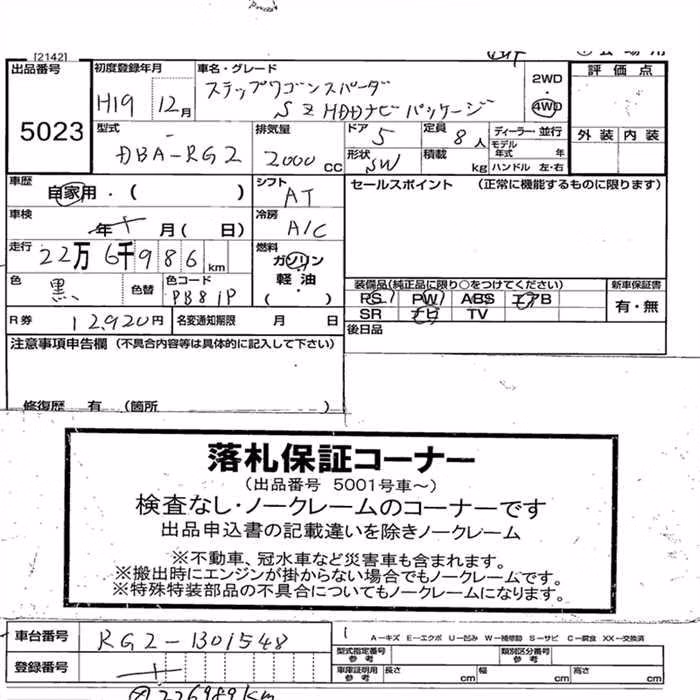 [2142]
出品番号
5023
初度登録年月
H19 12月
車名・グレード
ステップワゴンスパーダ
SZ HDDナビパッケージ
2WD
4WD
評価点
外装 内装
型式
DBA-RG2
排気量
2000 CC
ドア 5
形状 SW
定員 8人
積載 kg
ディーラー・並行
モデル年式 年
ハンドル 左・右
車歴
自家用・( )
シフト AT
セールスポイント (正常に機能するものに限ります)
車検
年 月( 日)
冷房 A/C
走行
22万6千986 km
燃料
ガソリン
軽油
・( )
色 黒
色替
色コード
PB81P
装備品(純正品に限り○をつけてください)
新車保証書
PS PW ABS エアB
SR ナビ TV
有・無
R券 12,920円
名変通知期限 月 日
後日品
注意事項申告欄 (不具合内容等は具体的に記入して下さい)
修復歴 有 (箇所 )
落札保証コーナー
(出品番号 5001号車〜)
検査なし・ノークレームのコーナーです
出品申込書の記載違いを除きノークレーム
※不動車、冠水車など災害車も含まれます。
※搬出時にエンジンが掛からない場合でもノークレームです。
※特殊特装部品の不具合についてもノークレームになります。
車台番号 RG2-1301548
A−キズ E−エクボ U−凹み W−補修跡 S−サビ C−腐食 XX−交換済
型式指定番号 参考
類別区分番号 参考
登録番号
車庫証明用 参考
長さ cm 幅 cm 高さ cm
226989km